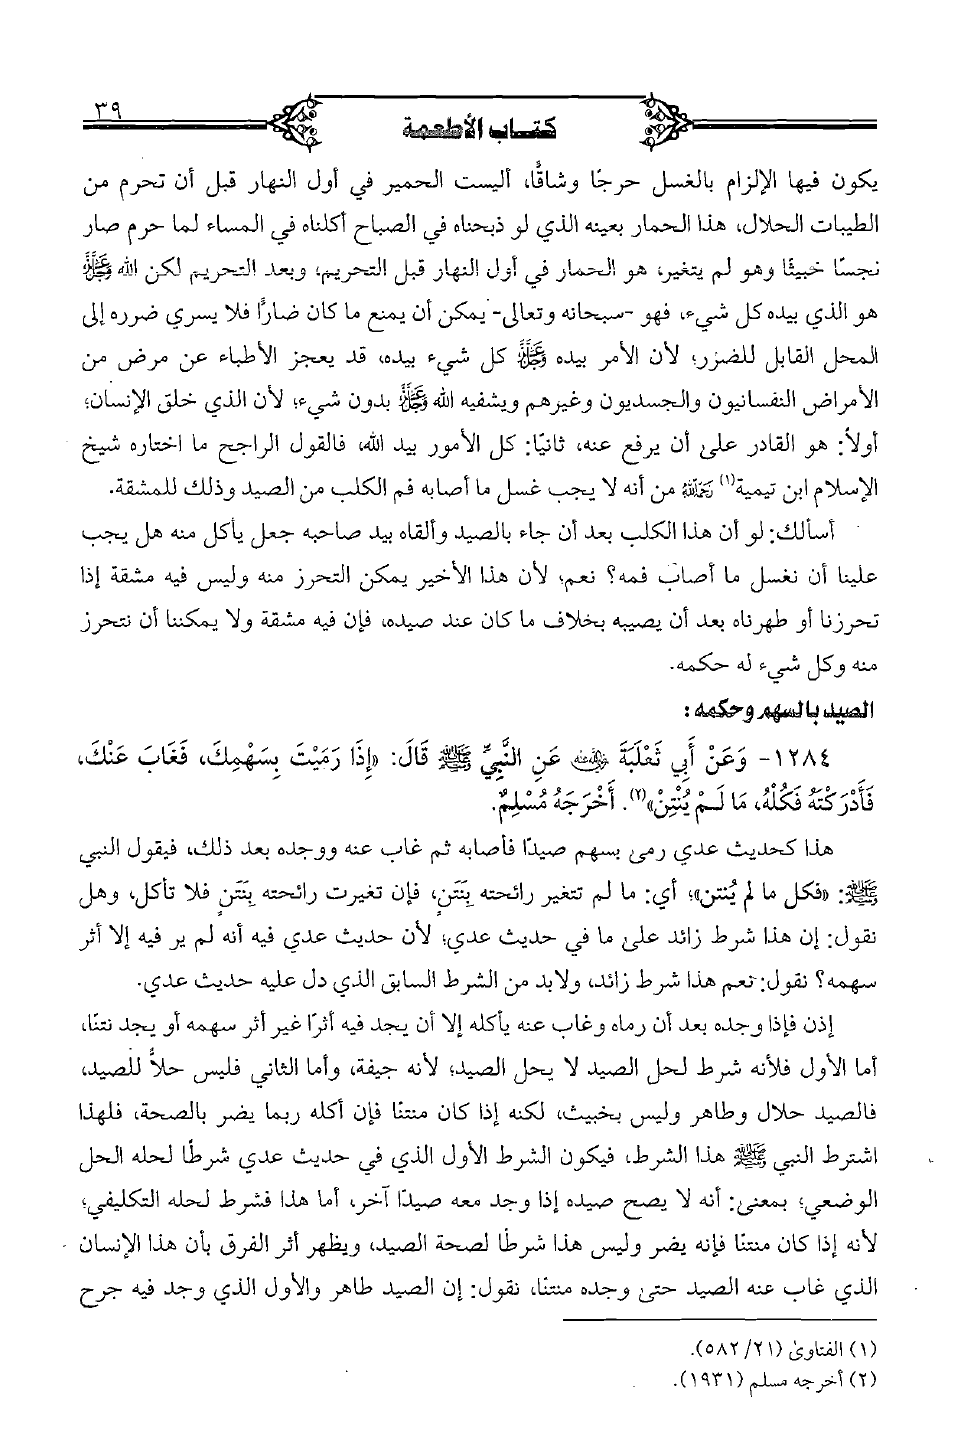 ٣٩
كتاب الأطعمة
يكون فيها الإلزام بالغسل حرجًا وشاقًّا، أليست الحمير في أول النهار قبل أن تحرم من
الطيبات الحلال، هذا الحمار بعينه الذي لو ذبحناه في الصباح أكلناه في المساء لما حرم صار
نجسًا خبيثًا وهو لم يتغير، هو الحمار في أول النهار قبل التحريم، وبعد التحريم لكن الله ﷻ
هو الذي بيده كل شيء، فهو -سبحانه وتعالى- يمكن أن يمنع ما كان ضارًّا فلا يسري ضرره إلى
المحل القابل للضرر؛ لأن الأمر بيده ﷻ كل شيء بيده، قد يعجز الأطباء عن مرض من
الأمراض النفسانيون والجسديون وغيرهم ويشفيه الله ﷻ بدون شيء؛ لأن الذي خلق الإنسان؛
أولاً: هو القادر على أن يرفع عنه، ثانيًا: كل الأمور بيد الله، فالقول الراجح ما اختاره شيخ
الإسلام ابن تيمية(١) رحمه الله من أنه لا يجب غسل ما أصابه فم الكلب من الصيد وذلك للمشقة.
أسألك: لو أن هذا الكلب بعد أن جاء بالصيد وألقاه بيد صاحبه جعل يأكل منه هل يجب
علينا أن نغسل ما أصاب فمه؟ نعم؛ لأن هذا الأخير يمكن التحرز منه وليس فيه مشقة إذا
تحرزنا أو طهرناه بعد أن يصيبه بخلاف ما كان عند صيده، فإن فيه مشقة ولا يمكننا أن نتحرز
منه وكل شيء له حكمه.
الصيد بالسهم وحكمه:
١٢٨٤- وَعَنْ أَبِي ثَعْلَبَةَ رضي الله عنه عَنِ النَّبِيِّ ﷺ قَالَ: «إِذَا رَمَيْتَ بِسَهْمِكَ، فَغَابَ عَنْكَ،
فَأَدْرَكْتَهُ فَكُلْهُ، مَا لَمْ يُنْتِنْ»(٢). أَخْرَجَهُ مُسْلِمٌ.
هذا كحديث عدي رمى بسهم صيدًا فأصابه ثم غاب عنه ووجده بعد ذلك، فيقول النبي
ﷺ: «فكل ما لم يُنتن»؛ أي: ما لم تتغير رائحته بِنَتَنٍ، فإن تغيرت رائحته بِنَتَنٍ فلا تأكل، وهل
نقول: إن هذا شرط زائد على ما في حديث عدي؛ لأن حديث عدي فيه أنه لم ير فيه إلا أثر
سهمه؟ نقول: نعم هذا شرط زائد، ولابد من الشرط السابق الذي دل عليه حديث عدي.
إذن فإذا وجده بعد أن رماه وغاب عنه يأكله إلا أن يجد فيه أثرًا غير أثر سهمه أو يجد نتنًا،
أما الأول فلأنه شرط لحل الصيد لا يحل الصيد؛ لأنه جيفة، وأما الثاني فليس حلاًّ للصيد،
فالصيد حلال وطاهر وليس بخبيث، لكنه إذا كان منتنًا فإن أكله ربما يضر بالصحة، فلهذا
اشترط النبي ﷺ هذا الشرط، فيكون الشرط الأول الذي في حديث عدي شرطًا لحله الحل
الوضعي؛ بمعنى: أنه لا يصح صيده إذا وجد معه صيدًا آخر، أما هذا فشرط لحله التكليفي؛
لأنه إذا كان منتنًا فإنه يضر وليس هذا شرطًا لصحة الصيد، ويظهر أثر الفرق بأن هذا الإنسان
الذي غاب عنه الصيد حتى وجده منتنًا، نقول: إن الصيد طاهر والأول الذي وجد فيه جرح
(١) الفتاوى (٢١/ ٥٨٢).
(٢) أخرجه مسلم (١٩٣١).